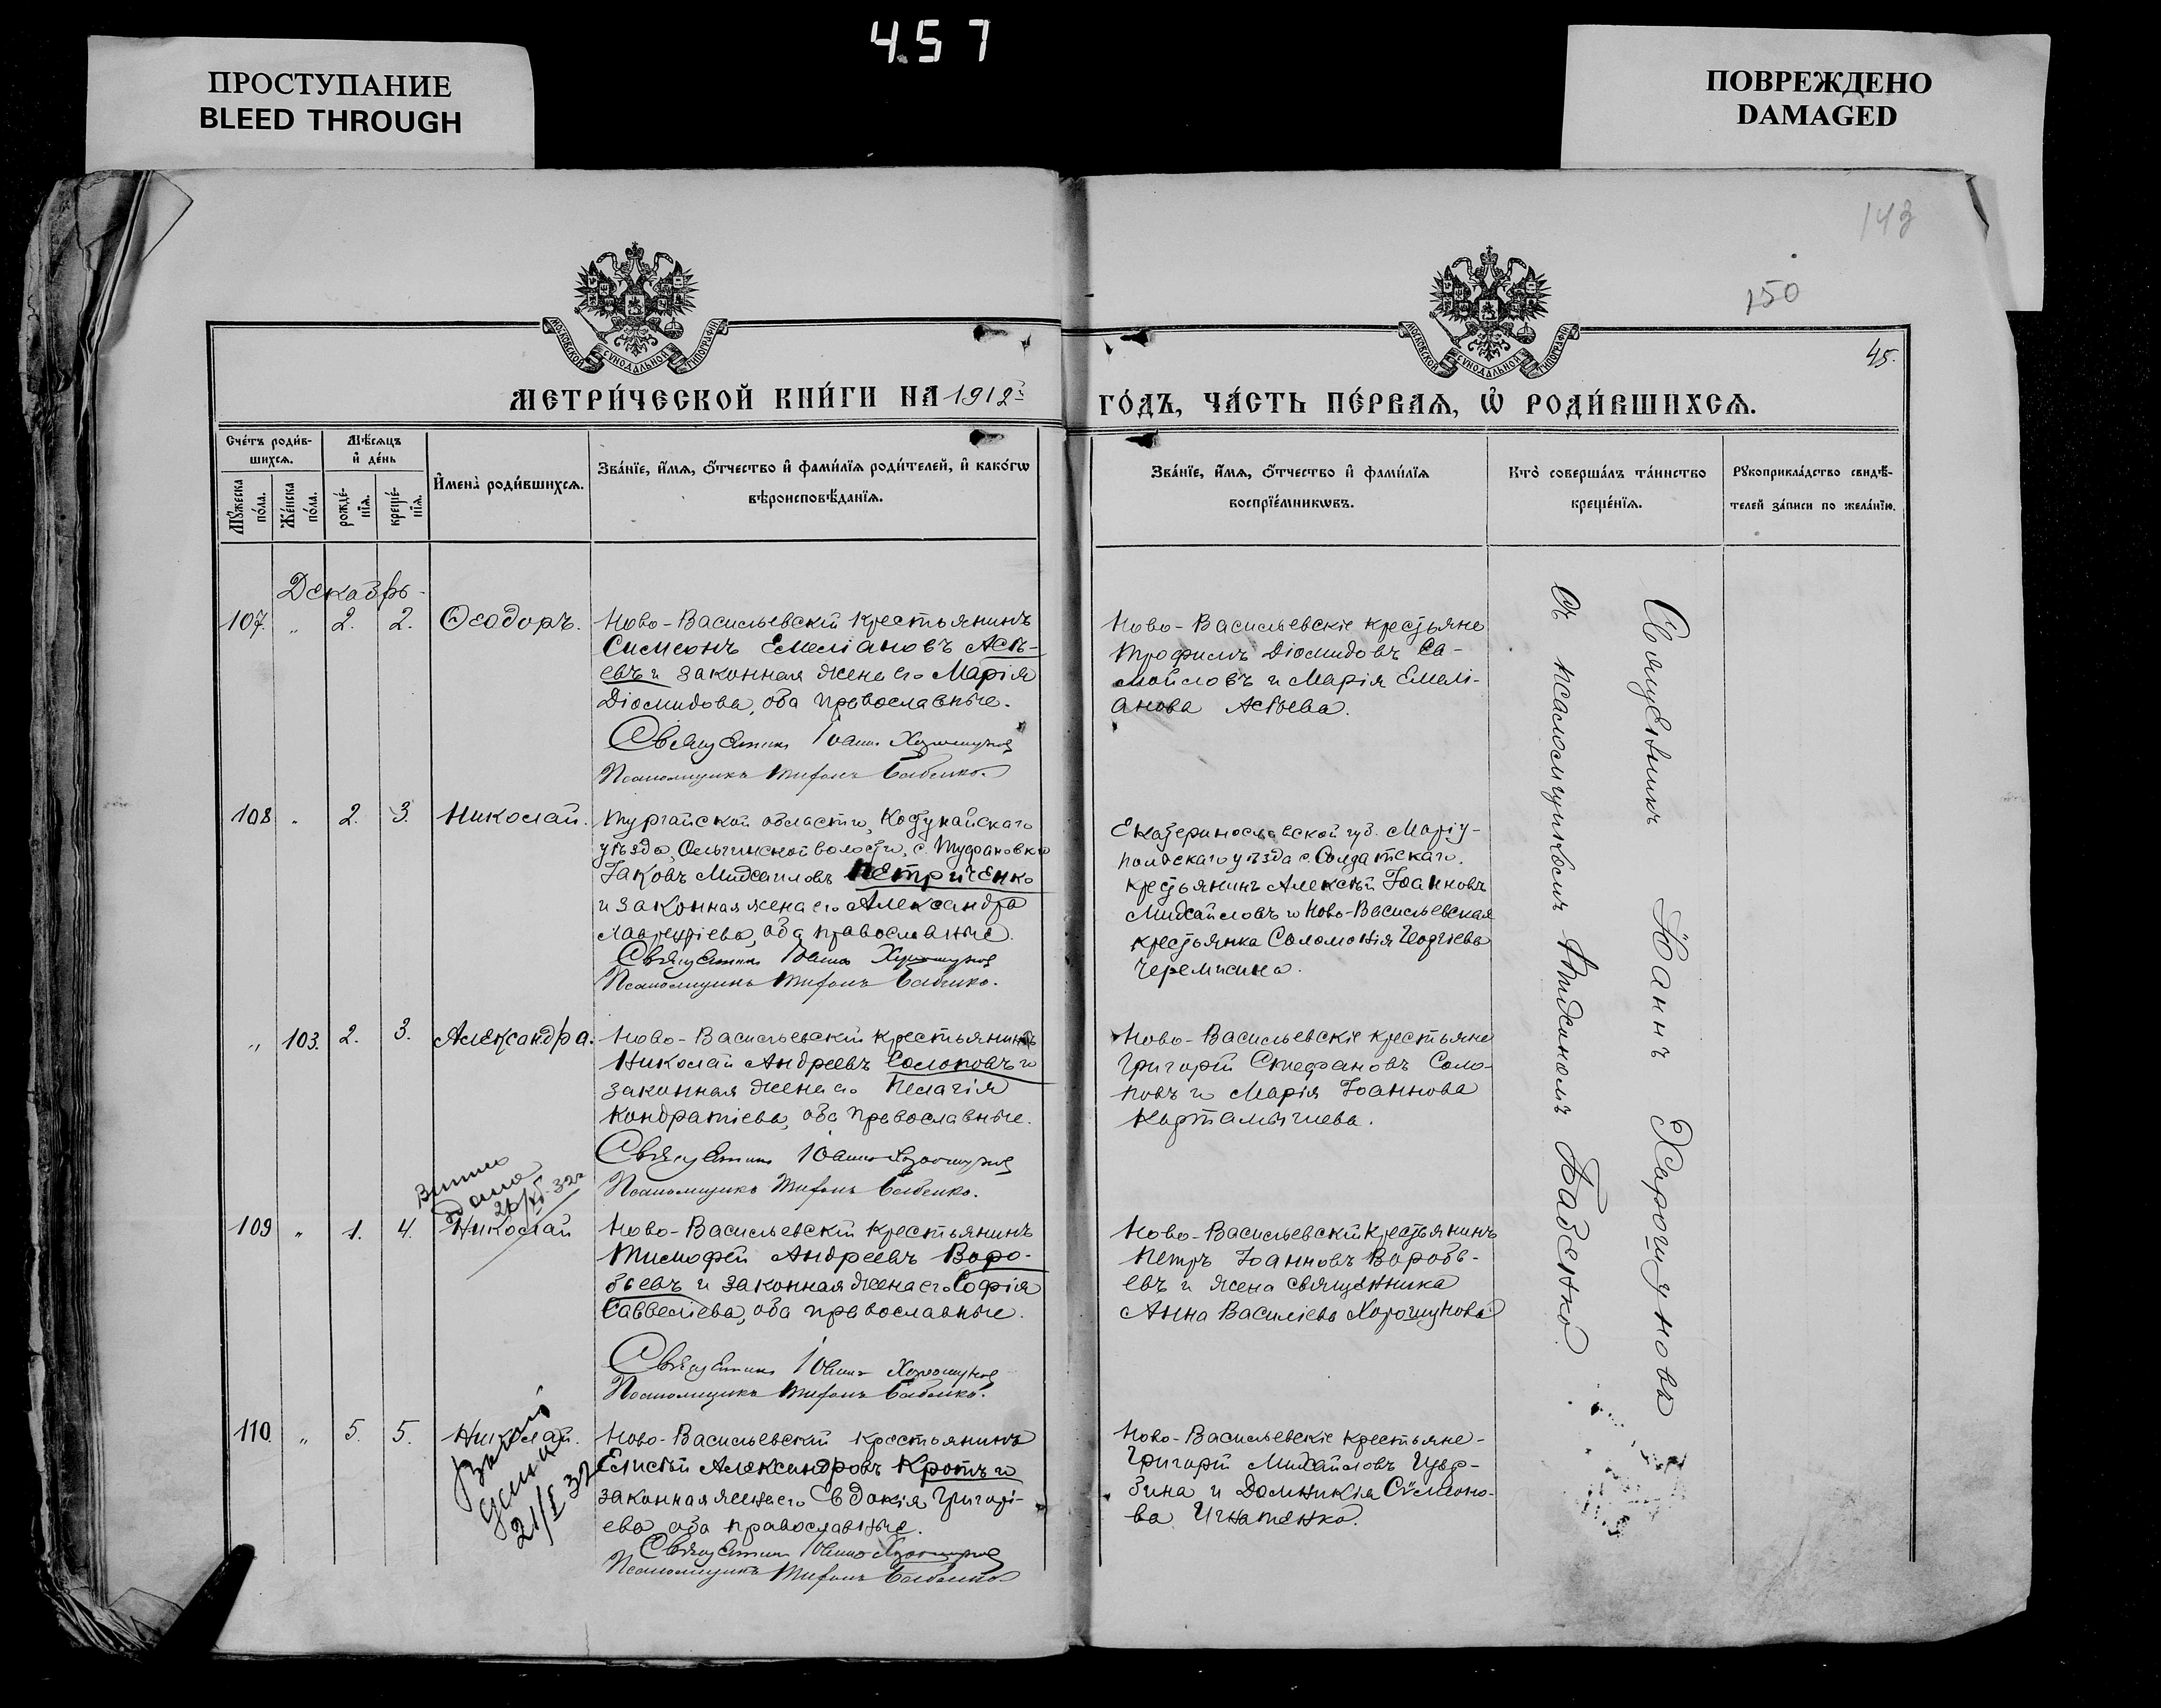 457
ПРОСТУПАНИЕ
BLEED THROUGH
ПОВРЕЖДЕНО
DAMAGED
143
150
45.
МОСКОВСКОЙ СѴНОДАЛЬНОЙ ТИПОГРАФІИ
МОСКОВСКОЙ СѴНОДАЛЬНОЙ ТИПОГРАФІИ
МЕТРИ́ЧЕСКОЙ КНИ́ГИ НА 1912 г.
ГО́ДЪ, ЧА́СТЬ ПЕ́РВАѦ, Ѽ РОДИ́ВШИХСѦ.
Сче́тъ роди́в-
шихсѧ.
Мѣ́сѧцъ
и҆ де́нь
Мꙋ́жеска
по́ла.
Же́нска
по́ла.
рожде́-
нїѧ.
креще́-
нїѧ.
И҆мена̀ роди́вшихсѧ.
Зва́нїе, и҆́мѧ, ѻ҆́тчество и҆ фами́лїѧ роди́телей, и҆ како́гѡ
вѣроисповѣ́данїѧ.
Зва́нїе, и҆́мѧ, ѻ҆́тчество и҆ фами́лїѧ
воспрїе́мникѡвъ.
Кто̀ соверша́лъ та́инство
креще́нїѧ.
Рꙋкоприкла́дство свидѣ́-
телей за́писи по жела́нїю.
Декабрь.
107. „ 2. 2. Ѳеодоръ.
Ново-Васильевскій крестьянинъ
Симеонъ Емеліановъ Асѣ-
евъ и законная жена его Марія
Діомидова, оба православные.
Священникъ Іоаннъ Харошуновъ
Псаломщикъ Бабенко.
Ново-Васильевскіе крестьяне
Трофимъ Діомидовъ Са-
мойловъ и Марія Емелі-
анова Асѣева.
108 „ 2. 3. Николай.
Тургайской области, Кустанайскаго
уѣзда, Ольгинской волости, с.
Іаковъ Михаиловъ Петриченко
и законная жена его Александра
Лаврентіева, оба православные.
Священникъ Іоаннъ Харошуновъ
Псаломщикъ Бабенко.
Екатеринославской губ. Маріу-
польскаго уѣзда с. Солдатскаго.
крестьянинъ Алексѣй Іоанновъ
Михайловъ и Ново-Васильевская
крестьянка Соломонія Георгіева
Черемисина.
„ 103. 2. 3. Александра.
Ново-Васильевскій крестьянинъ
Николай Андреевъ Солоповъ и
законная жена его Пелагія
Кондратіева, оба православные.
Священникъ Іоаннъ Харошуновъ
Псаломщикъ Бабенко.
Ново-Васильевскіе крестьяне
Григорій Стефановъ Соло-
повъ и Марія Іоаннова
Картамышева.
дана
109 „ 1. 4. Николай
Ново-Васильевскій крестьянинъ
Тимофей Андреевъ Воро-
бьевъ и законная жена его Софія
Саввеліева, оба православные.
Священникъ Іоаннъ Харошуновъ
Псаломщикъ Бабенко.
Ново-Васильевскій крестьянинъ
Петръ Іоанновъ Воробь-
евъ и жена священника
Анна Василіева Харошунова
110. „ 5. 5. Николай.
21/I 32
Ново-Васильевскій крестьянинъ
Елисѣй Александровъ Кротъ и
законная жена его Евдокія Григорі-
ева, оба православные.
Священникъ Іоаннъ Харошуновъ
Псаломщикъ Бабенко.
Ново-Васильевскіе крестьяне-
Григорій Михайловъ
и Домникія Сѵмеоно-
ва Игнатенко.
Священникъ Іоаннъ Харошуновъ
съ псаломщикомъ Бабенко.